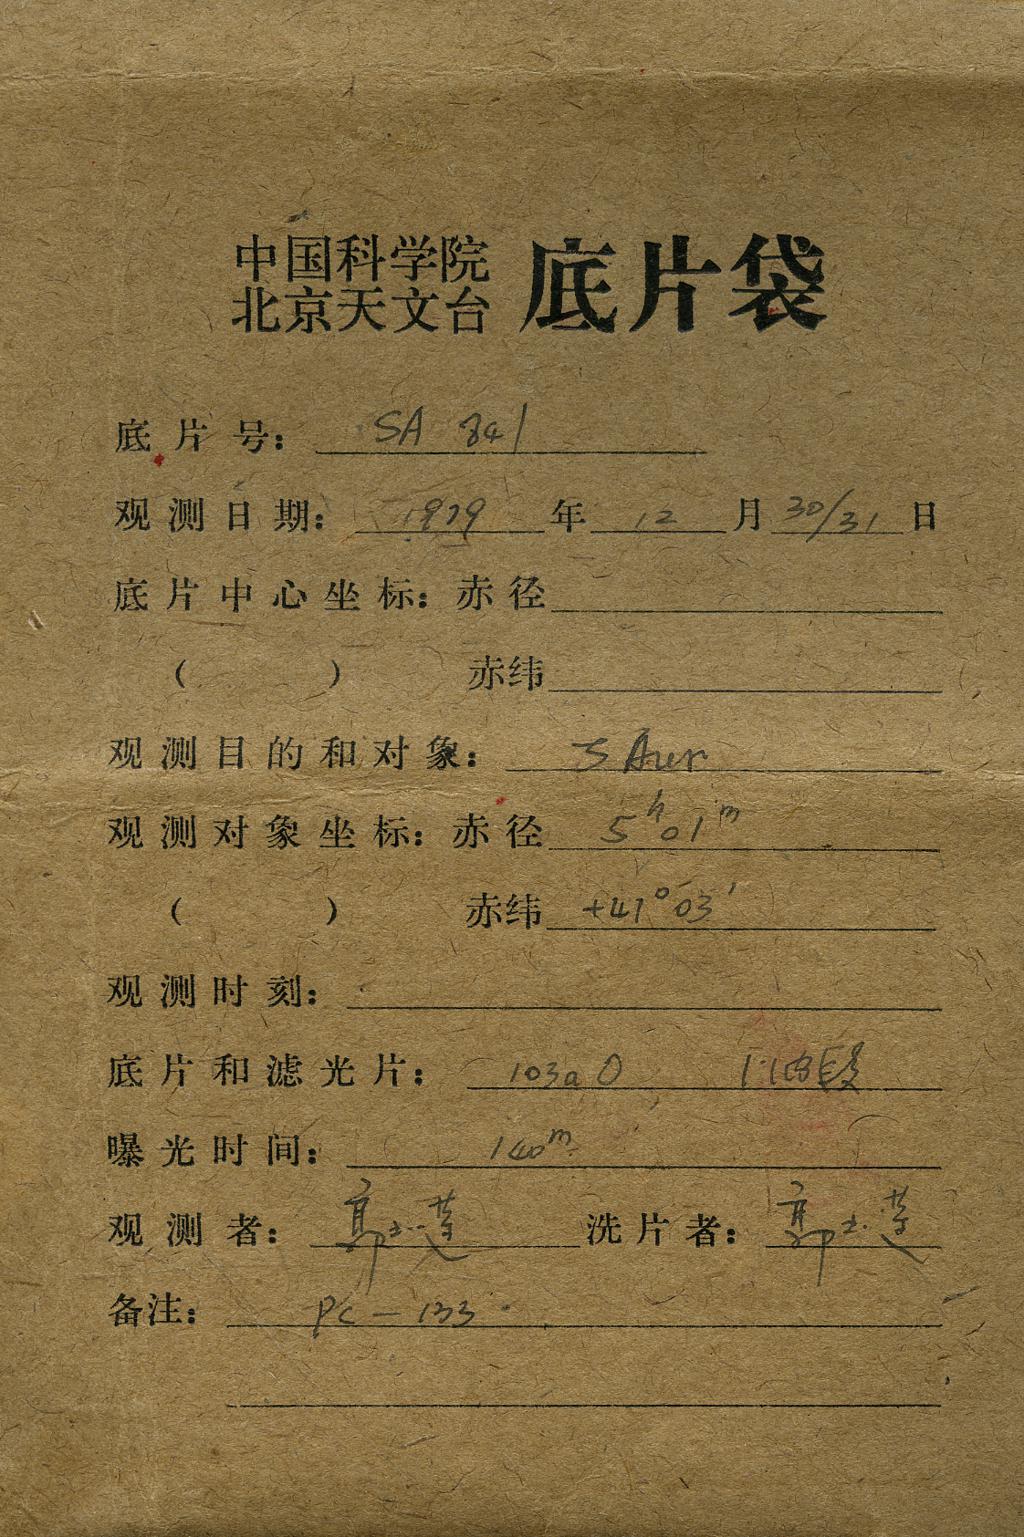 中国科学院
北京天文台 底片袋
底片号: SA 841
观测日期: 1979 年 12 月 30/31 日
底片中心坐标: 赤径
( ) 赤纬
观测目的和对象: S Aur
观测对象坐标: 赤径 5ʰ01ᵐ
( ) 赤纬 +41°03′
观测时刻:
底片和滤光片: 103aO
曝光时间: 140ᵐ
观测者: 洗片者:
备注: PC-133